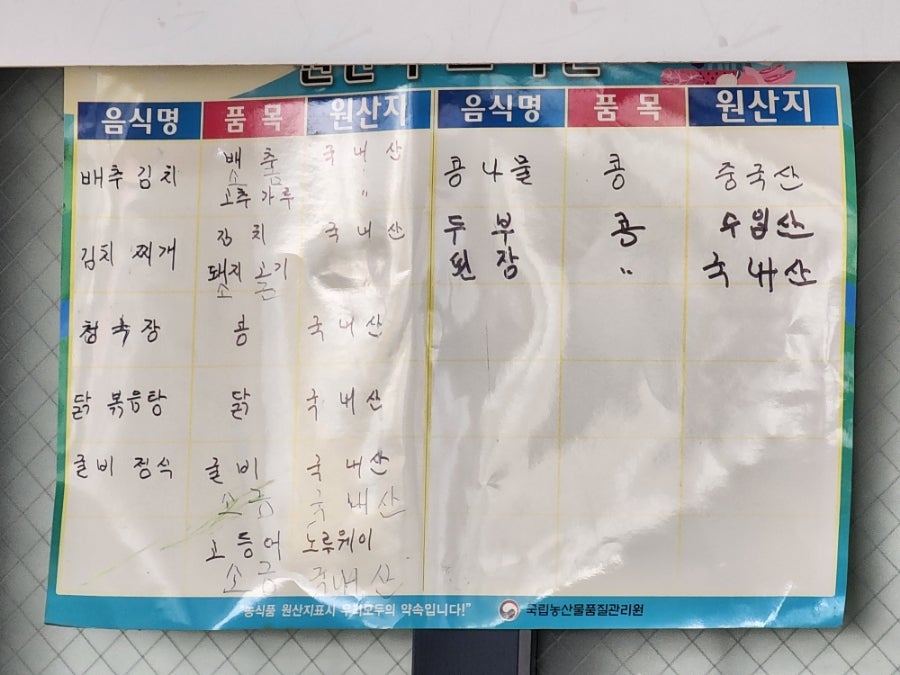 음식명 품목 원산지
배추김치 배추 국내산
소금
고추가루 "
김치 찌개 김치 국내산
돼지고기 "
청국장 콩 국내산
닭 볶음탕 닭 국내산
굴비 정식 굴비 국내산
소금 국내산
고등어 노루웨이
소금 국내산
음식명 품목 원산지
콩나물 콩 중국산
두부 콩 수입산
된장 " 국내산
"농식품 원산지표시 우리모두의 약속입니다!" 국립농산물품질관리원